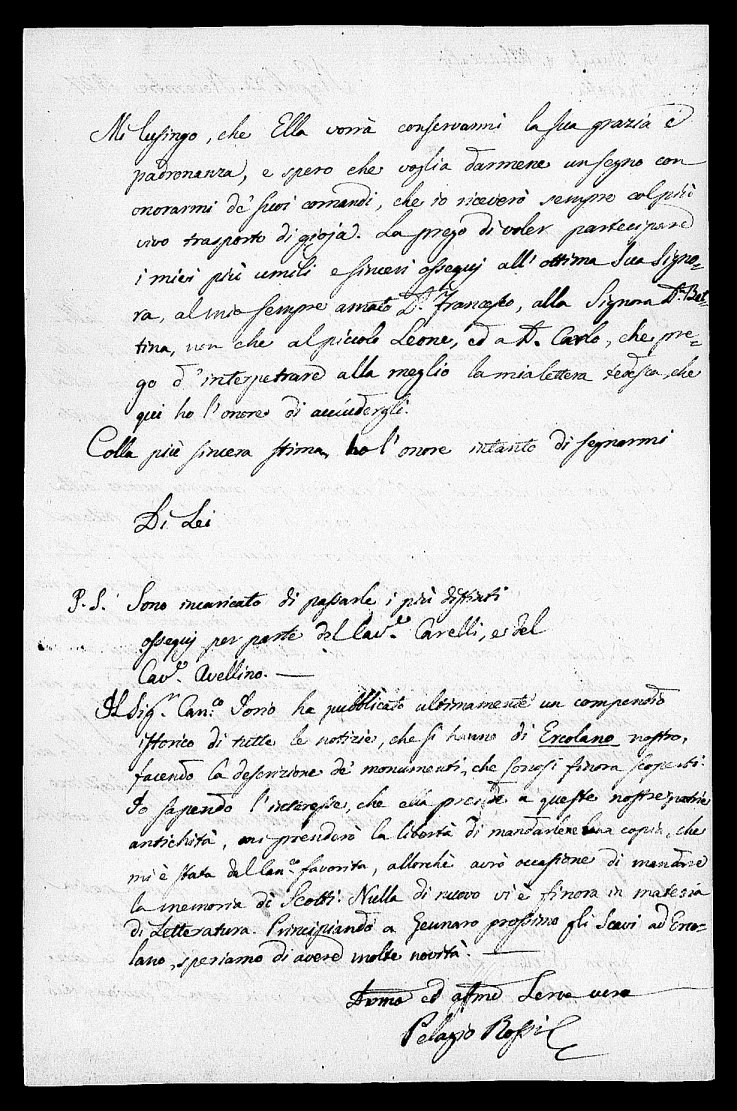 Mi lusingo, che Ella vorrà conservarmi la sua grazia e
padronanza, e spero che voglia darmene un segno con
onorarmi de' suoi comandi, che io riceverò sempre col più
vivo trasporto di gioja. La prego di voler partecipare
i miei più umili e sinceri ossequj all' ottima Sua Signo-
ra, al mio sempre amato D. Francesco, alla Signora Da. Bet-
tina, non che al piccolo Leone, ed a D. Carlo, che pre-
go d' interpetrare alla meglio la mia lettera tedesca, che
qui ho l'onore di acchiudergli.
Colla più sincera stima ho l'onore intanto di segnarmi
Di Lei
P. S. Sono incaricato di passarle i più distinti
ossequj per parte del Cavre. Carelli, e del
Cavre. Avellino. —
Il Sigr. Canco. Jorio ha pubblicato ultimamente un compendio
istorico di tutte le notizie, che si hanno di Ercolano nostro,
facendo la descrizione de' monumenti, che sonosi finora scoperti.
Io sapendo l'interesse, che ella prende a queste nostre patrie
antichità, mi prenderò la libertà di mandarlene una copia, che
mi è stata dal Canco. favorita, allorchè avrò occasione di mandare
la memoria di Scotti. Nulla di nuovo vi è finora in materia
di Letteratura. Principiando a Gennaro prossimo gli Scavi ad Erco-
lano, speriamo di avere molte novità. —
Dvmo ed affmo Servo vero
Pelagio Rossi